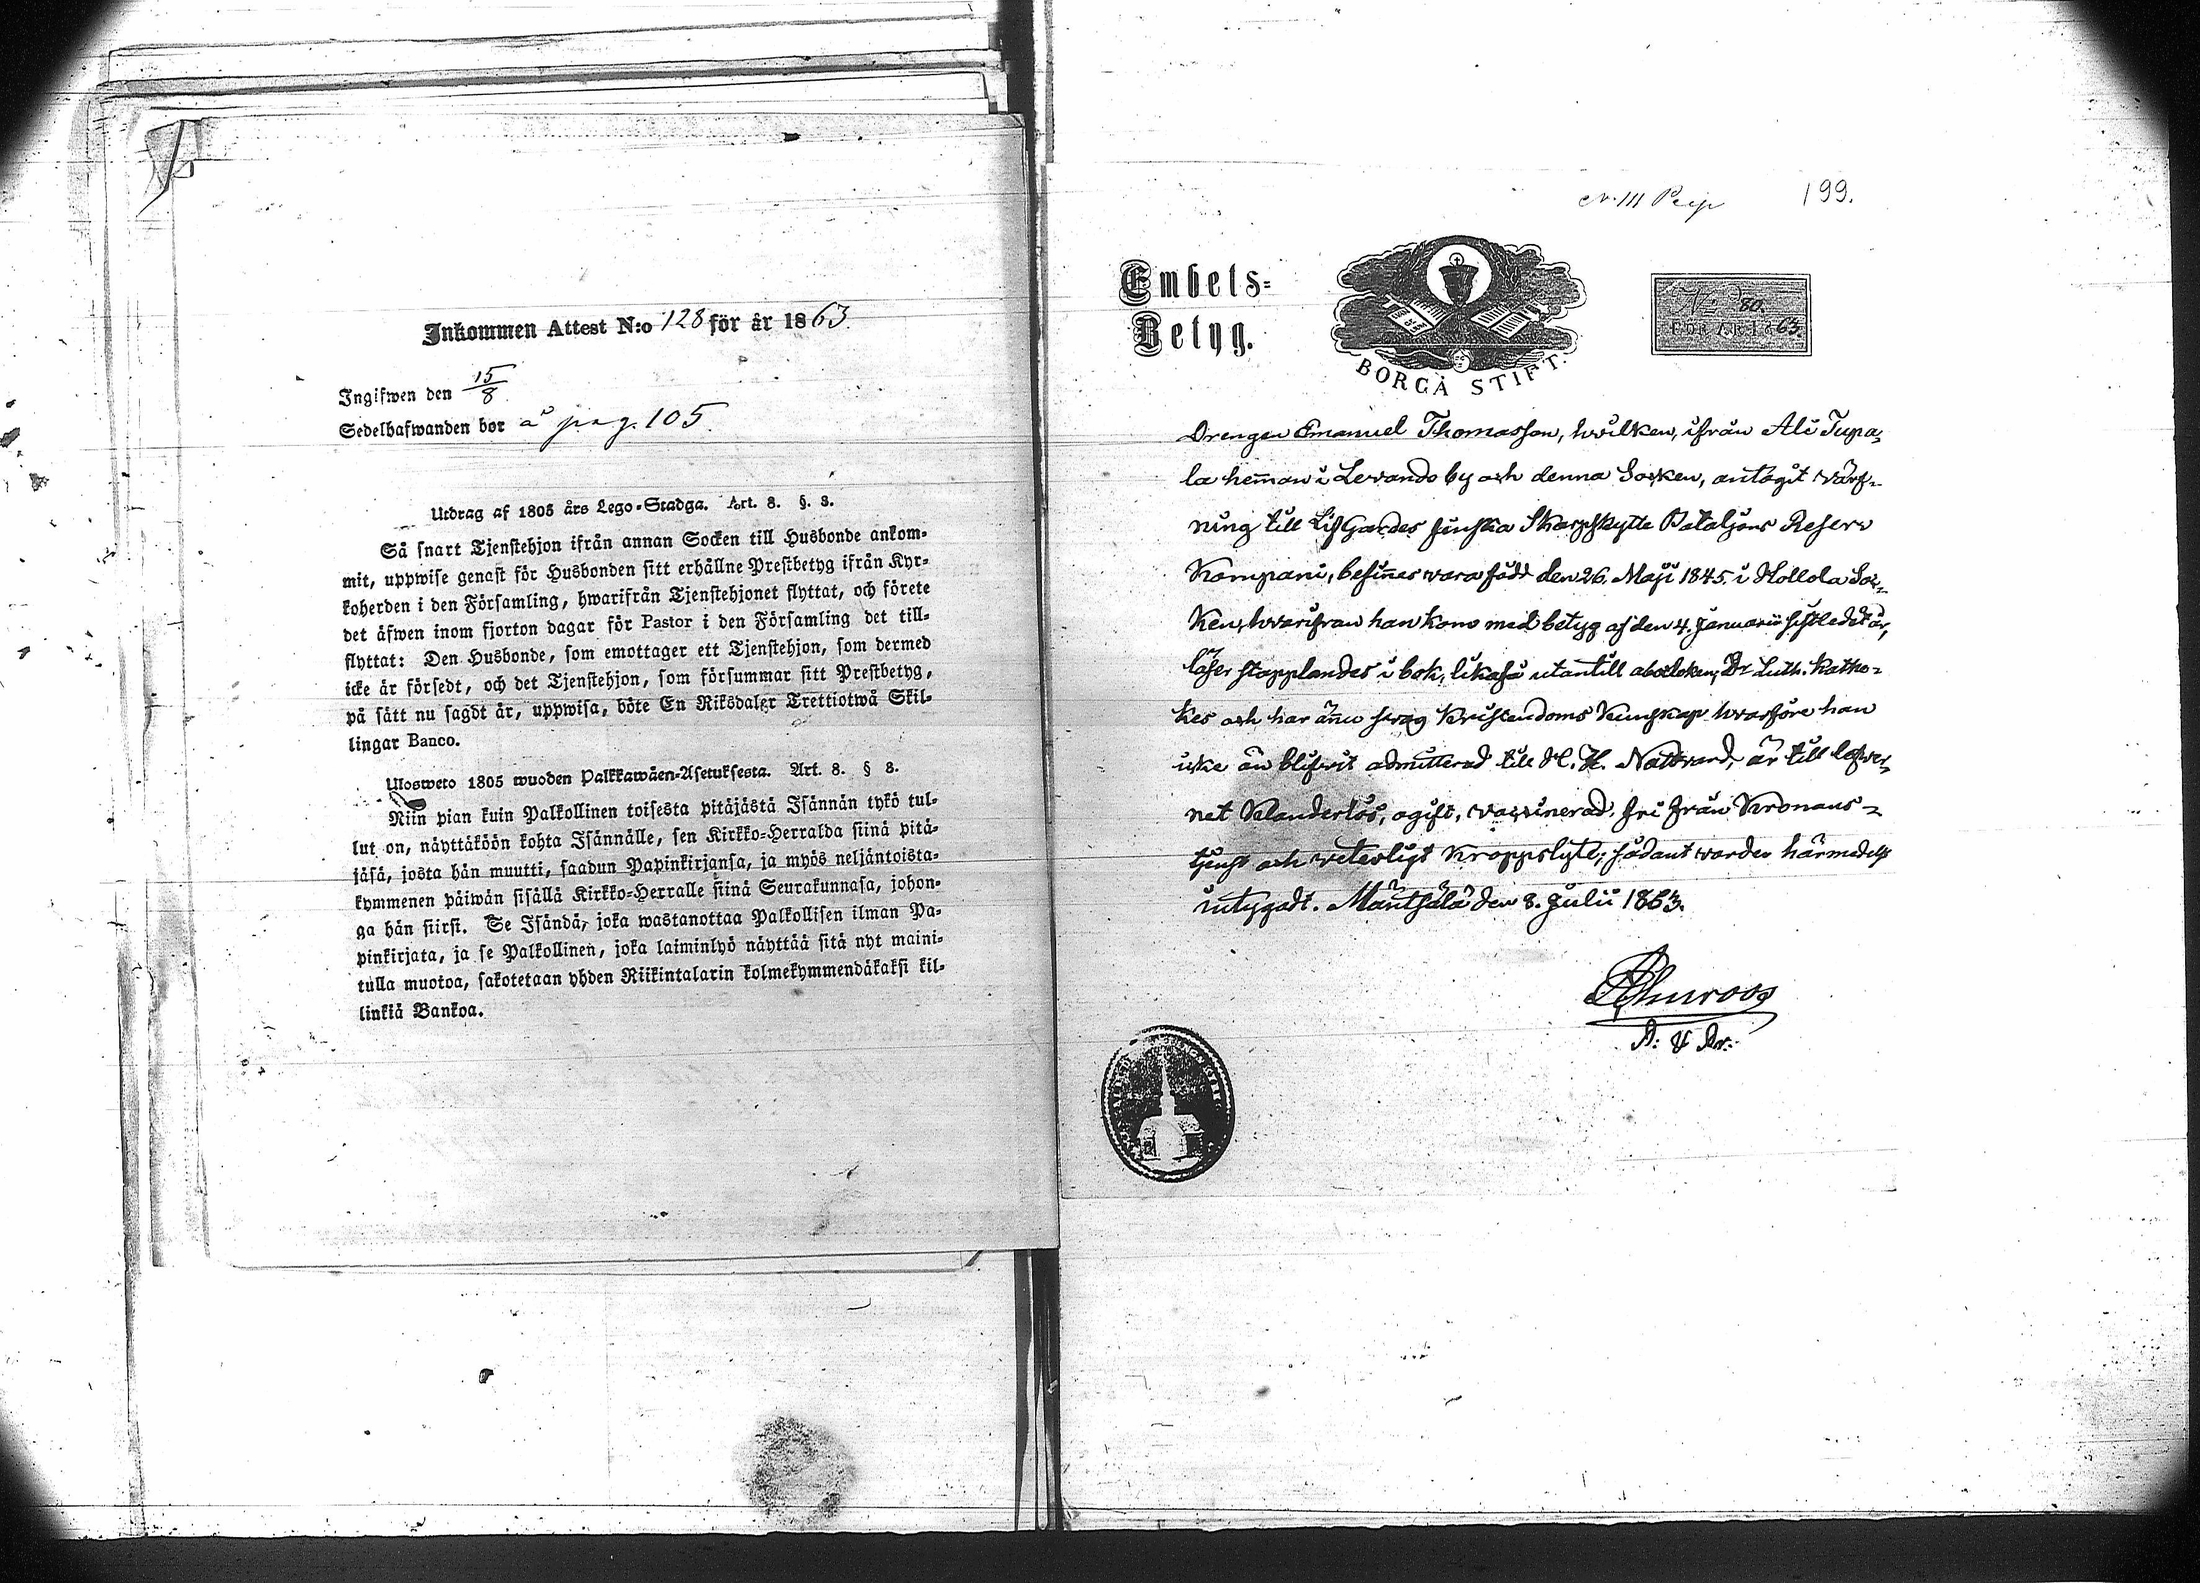 Inkommen Attest N:o 128 för år 1863.
Ingifwen den 15/8
Sedelhafwanden bor å pag. 105.
Utdrag af 1805 års Lego-Stadga. Art. 8. §. 8.
Så snart Tjenstehjon ifrån annan Socken till Husbonde ankom-
mit, uppwise genast för Husbonden sitt erhållne Prestbetyg ifrån Kyr-
koherden i den Församling, hwarifrån Tjenstehjonet flyttat, och förete
det äfwen inom fjorton dagar för Pastor i den Församling det till-
flyttat: Den Husbonde, som emottager ett Tjenstehjon, som dermed
icke är försedt, och det Tjenstehjon, som försummar sitt Prestbetyg,
på sätt nu sagdt är, uppwisa, böte En Riksdaler Trettiotwå Skil-
lingar Banco.
Ulosweto 1805 wuoden Palkkawäen-Asetuksesta. Art. 8. § 8.
Niin pian kuin Palkollinen toisesta pitäjästä Isännän tykö tul-
lut on, näyttäköön kohta Isännälle, sen Kirkko-Herralda siinä pitä-
jäsä, josta hän muutti, saadun Papinkirjansa, ja myös neljäntoista-
kymmenen päiwän sisällä Kirkko-Herralle siinä Seurakunnasa, johon-
ga hän siirsi. Se Isändä, joka wastanottaa Palkollisen ilman Pa-
pinkirjata, ja se Palkollinen, joka laiminlyö näyttää sitä nyt maini-
tulla muotoa, sakotetaan yhden Riikintalarin kolmekymmendäkaksi kil-
linkiä Bankoa.
199.
Embets-
Betyg.
BORGÅ STIFT.
No 80.
FÖR ÅR 1863.
Drengen Emanuel Thomasson, hvilken, ifrån Ali Tupa-
la hemman i Levando by och denna Socken, antagit värf-
ning till Lif Gardes finska Skarpskytte Bataljons Reserv
Kompani, befinnes vara född den 26. Maji 1845. i Hollola Soc-
ken, hvarifrån han kom med betyg af den 4. Januarii sistledet år,
läser stapplandes i bok, likaså utantill aboxboken, Dr Luth. Katke-
kes och har ännu svag Kristendoms Kunskap hvarföre han
icke än blifvit admitterad till H. H. Nattvard, är till lefver-
net Klanderlös, ogift, vaccinerad, fri från Kronans-
tjenst och veterligt Kroppslyte; sådant varder härmedelst
intygadt. Mäntsälä den 8. Julii 1863.